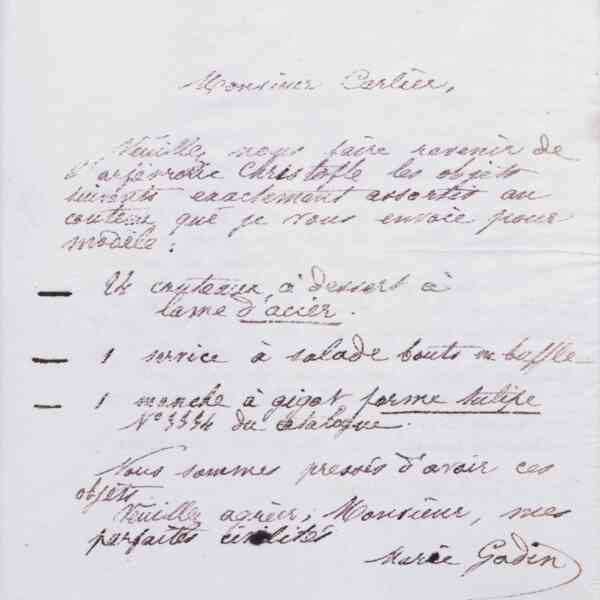 Monsieur Cartier,
Veuillez nous faire revenir de
l'orfèvrerie Christofle les objets
suivants exactement assortis au
couteau que je vous envoie pour
modèle :
couteaux à dessert à
lame d'acier.
1 service à salade bouts en buffle
1 manche à gigot forme tulipe
No 3334 du catalogue.
Nous sommes pressés d'avoir ces
objets
Veuillez agréer, Monsieur, mes
parfaites civilités
Marie Godin